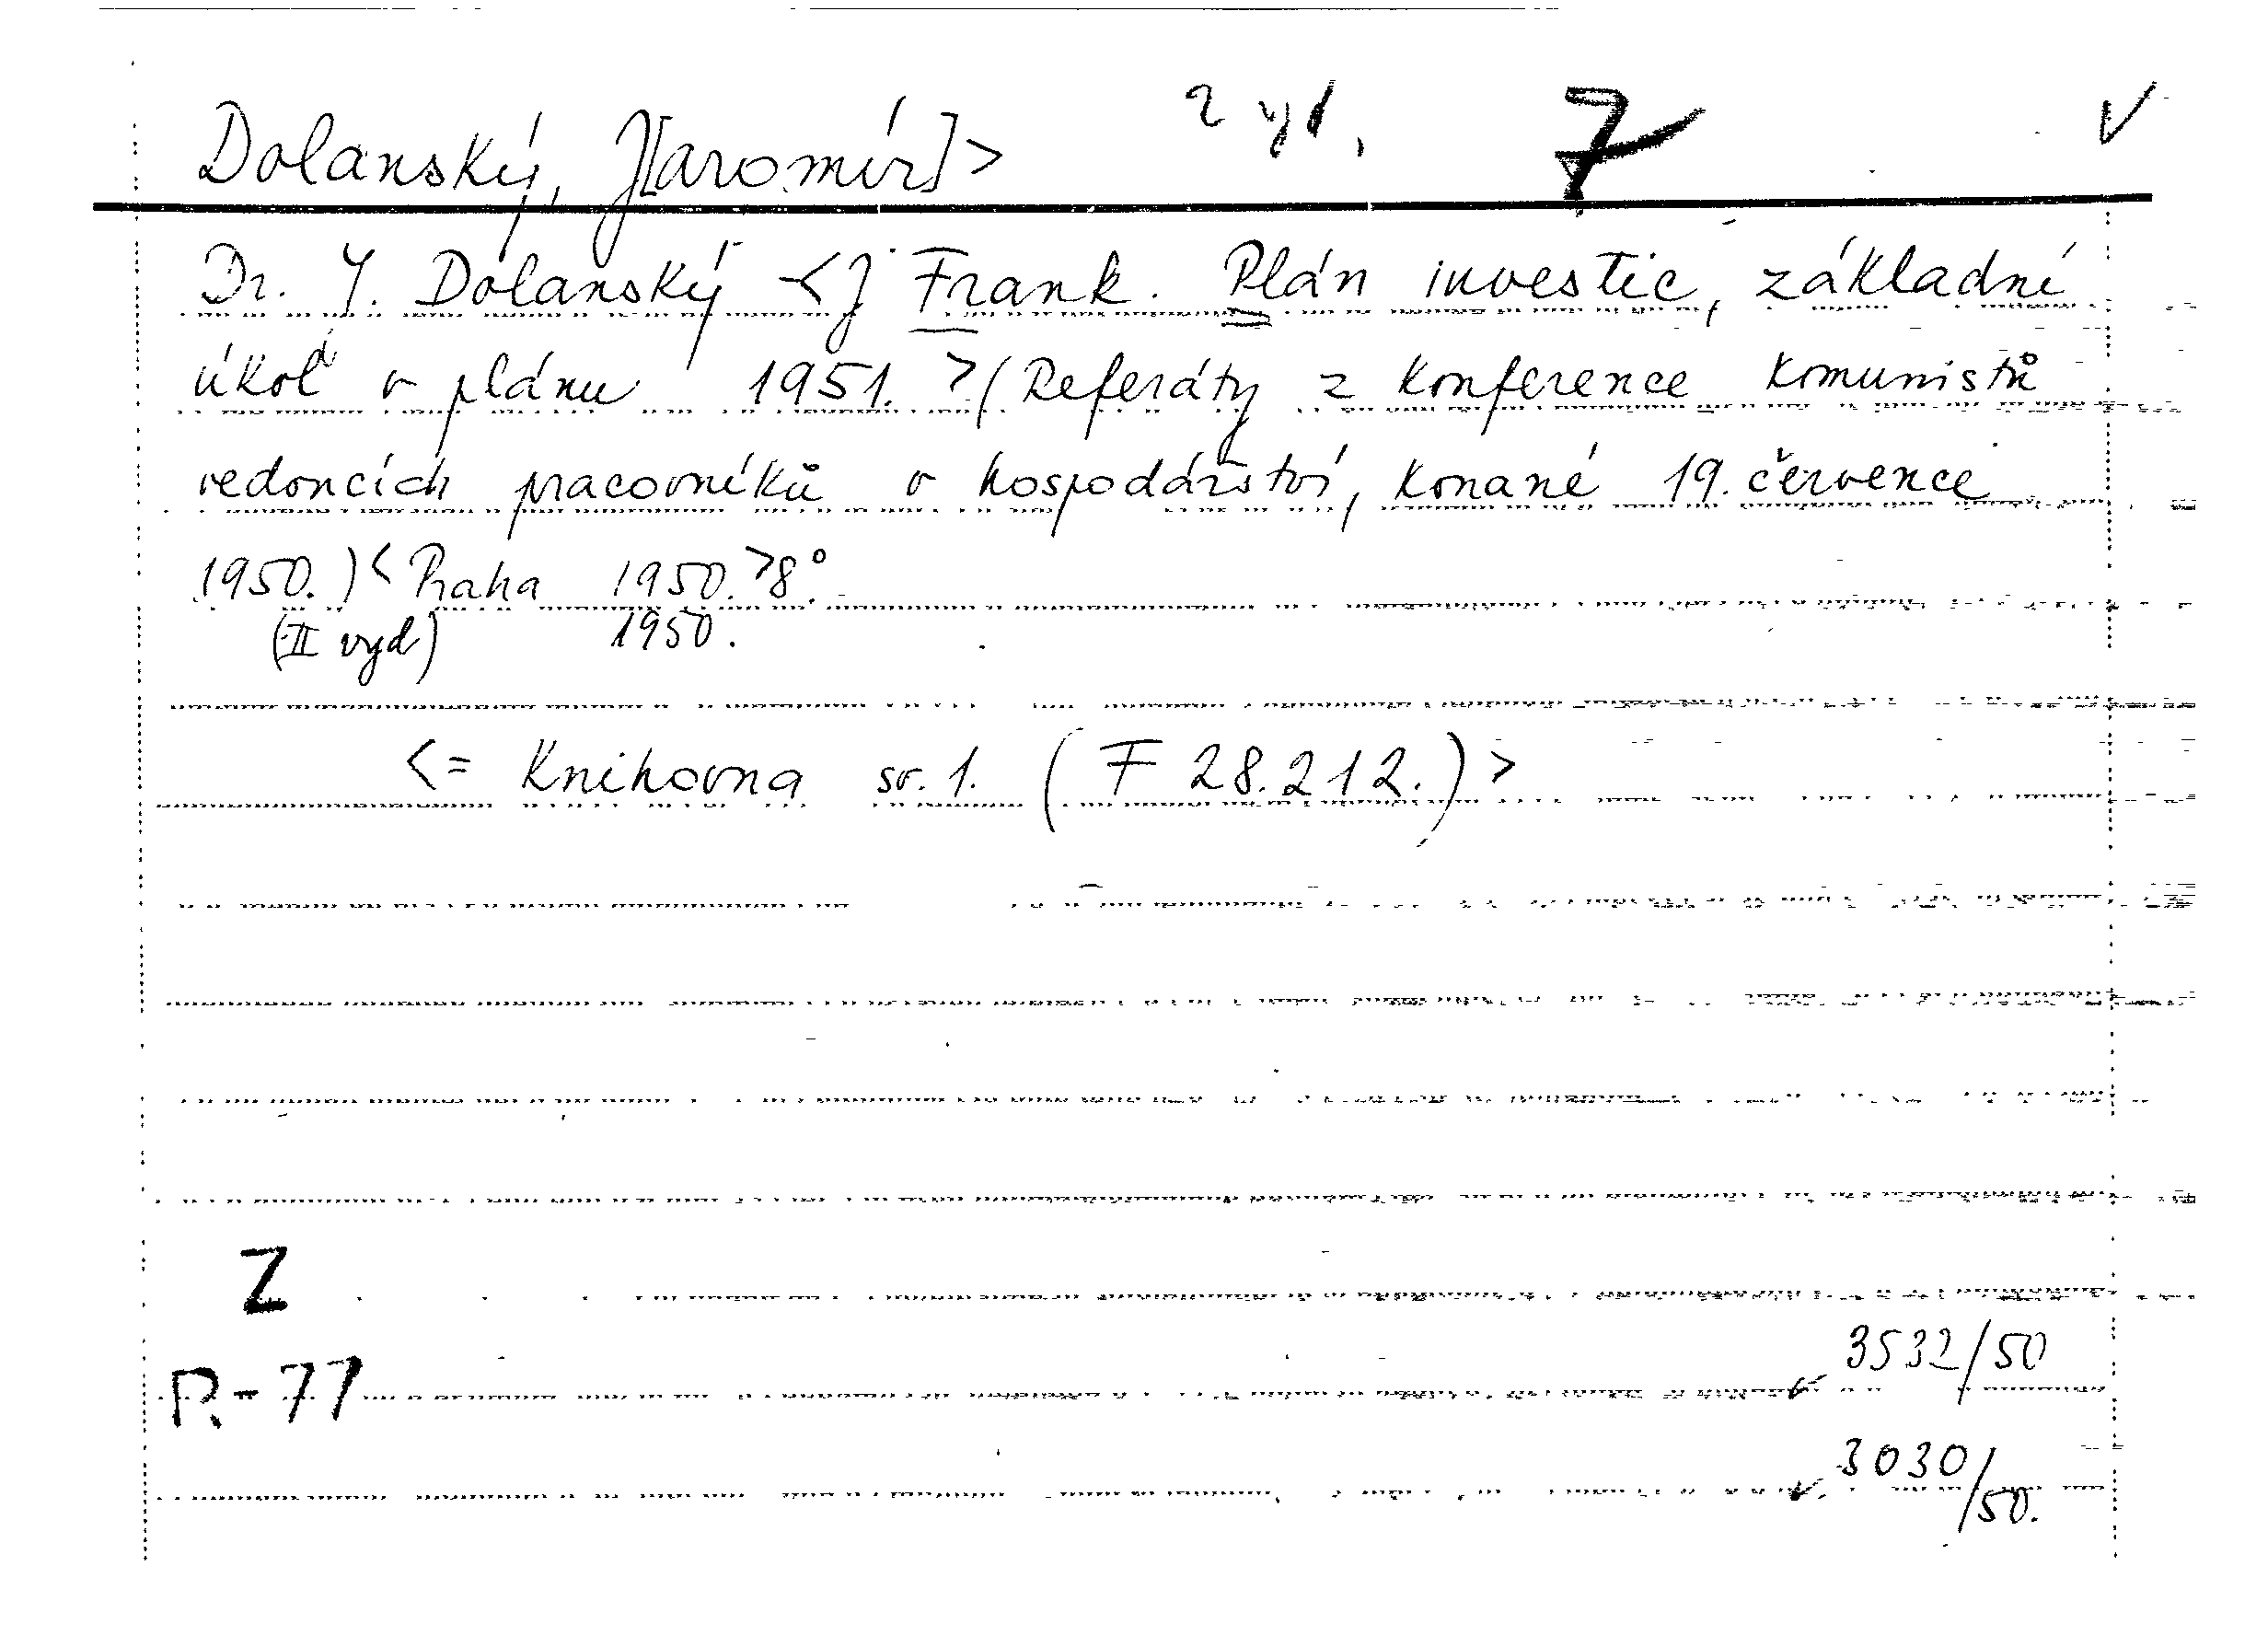 Dolanský, J[aromír]> 2 vyd. 7 V
Dr. J. Dolanský <J Frank. Plán investic, základní
úkol v plánu 1951. >(Referáty z konference komunistů
vedoncích pracovníků v hospodářství, konané 19. července
1950.)<Praha 1950.>8°.
(II vyd) 1950.
<= Knihovna sv. 1. (F 28.212.)>
Z
3532/50
R-77
3030/50.